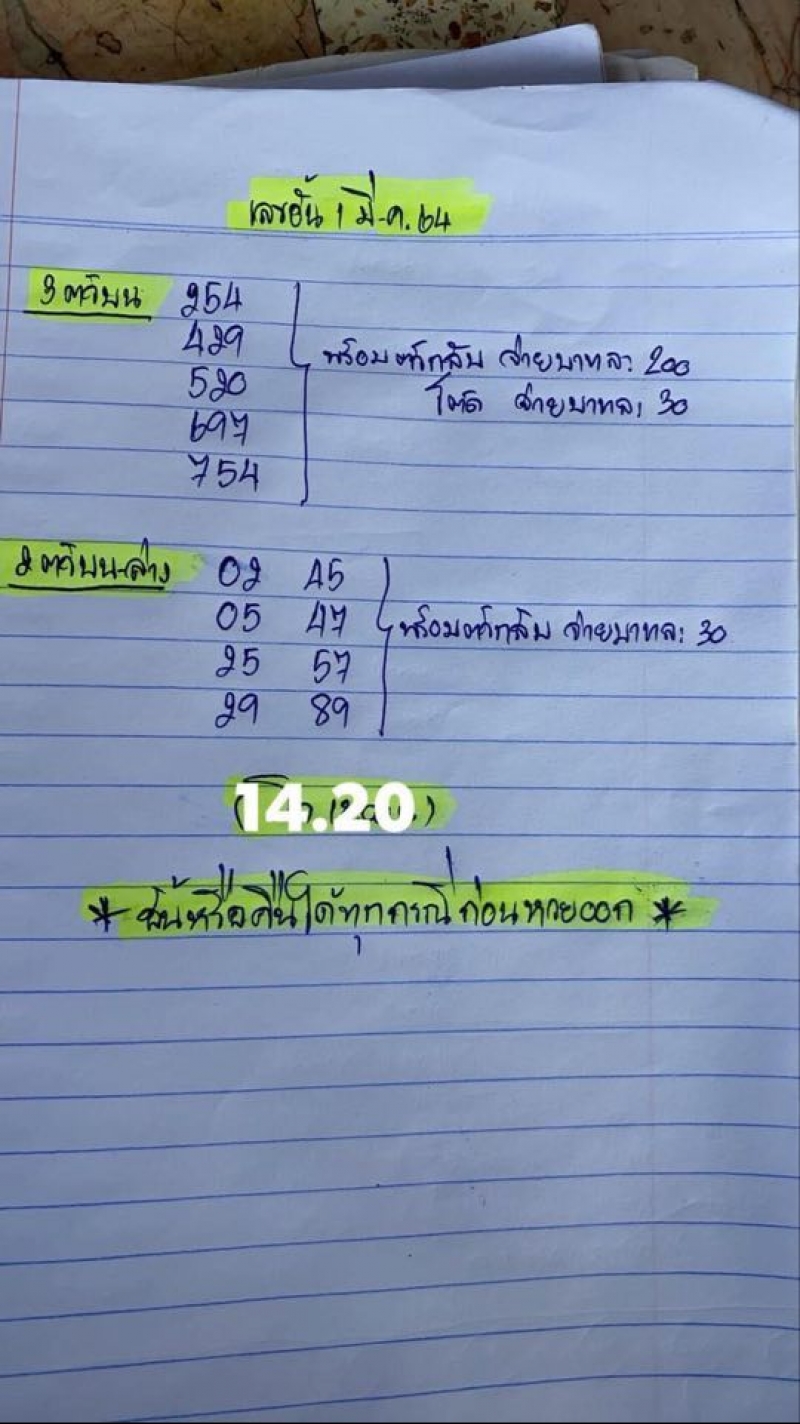 เลขอั้น 1 มี.ค. 64
3 ตัวบน 254
429
520
697
754
พร้อมตัวกลับ จ่ายบาทละ 200
โต๊ด จ่ายบาทละ 30
2 ตัวบน-ล่าง 02 45
05 47
25 57
29 89
พร้อมตัวกลับ จ่ายบาทละ 30
14.20
* อั้นหรือคืนได้ทุกกรณีก่อนหวยออก *